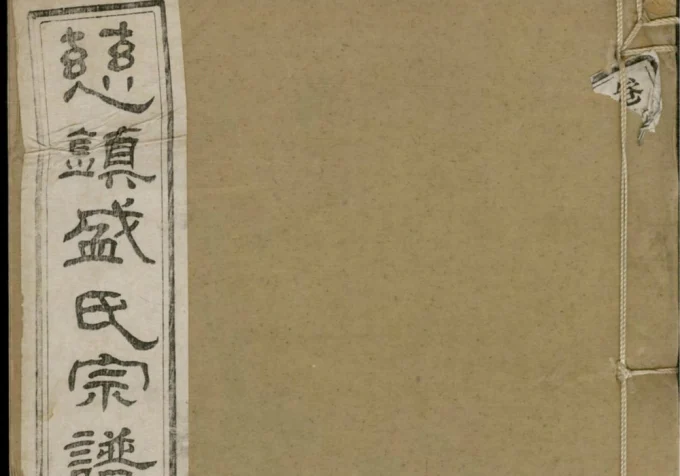 慈鎮盛氏宗譜